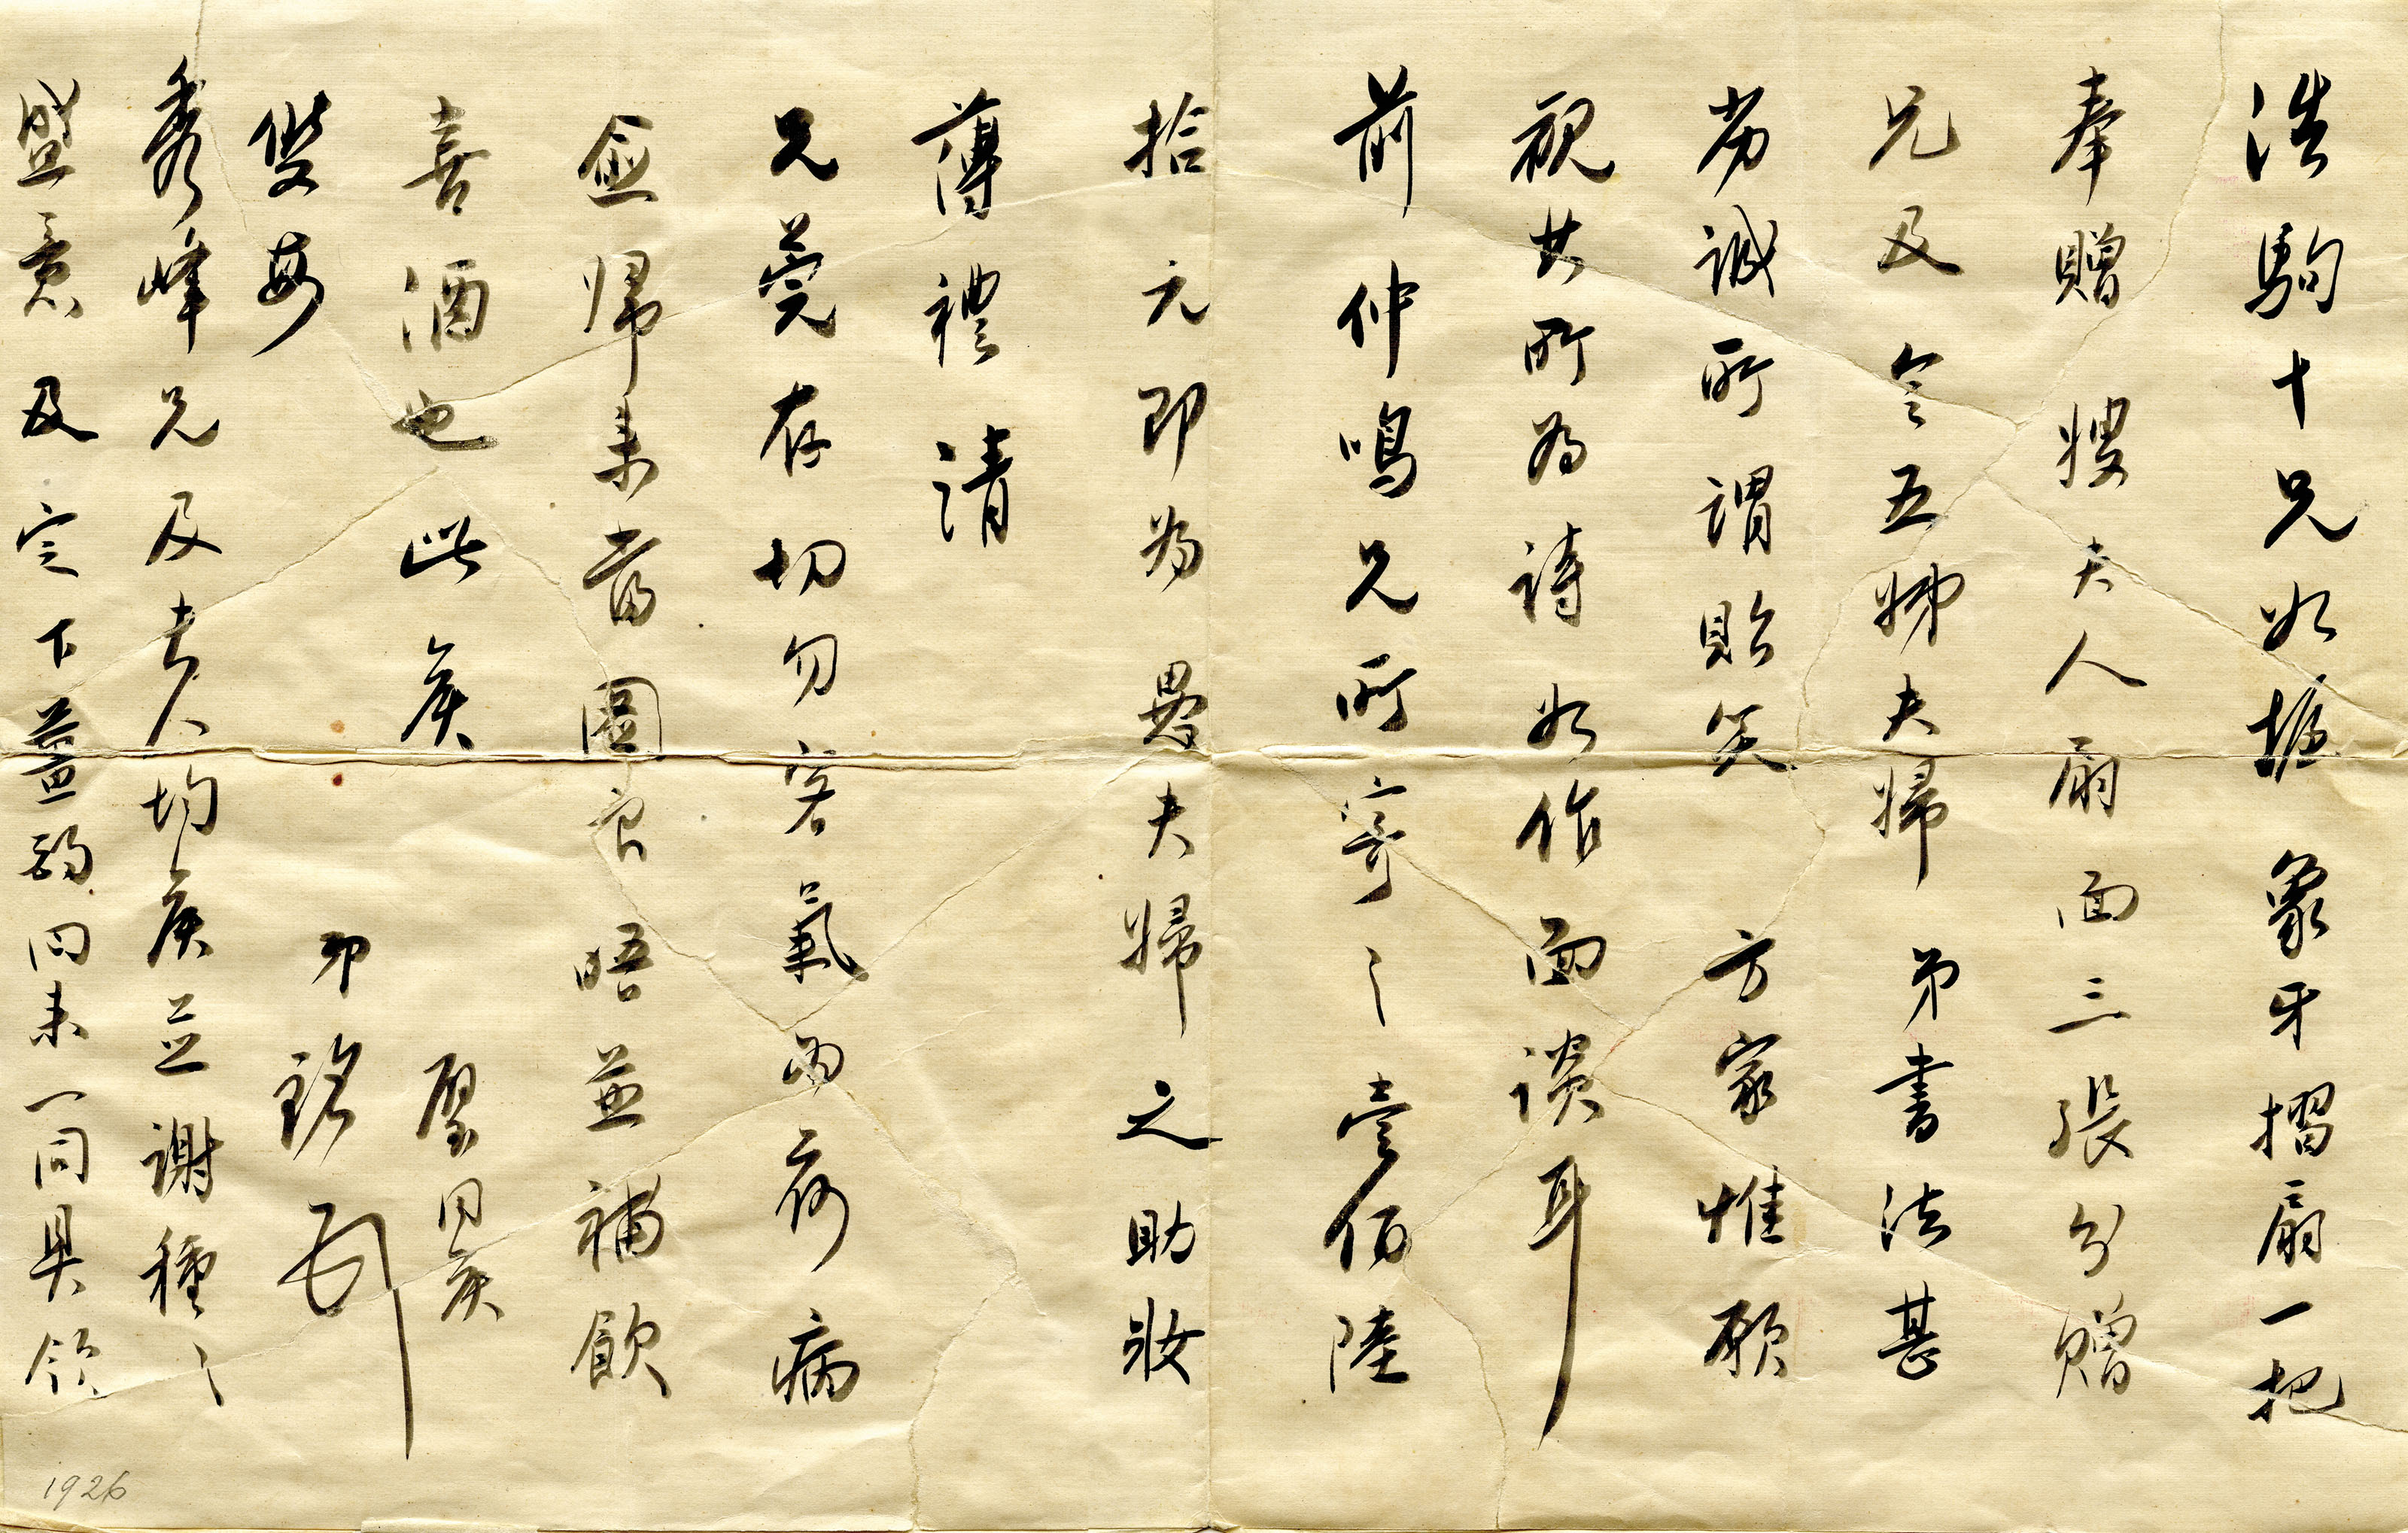 浩駒十兄如握 象牙摺扇一把
奉贈 嫂夫人扇面三張分贈
兄及令五姊夫婦 弟書法甚
劣誠所謂貽笑 方家惟願
視其所為詩如作面談耳
前仲鳴兄所寄之壹佰陸
拾元即為 畏夫婦之助妝
薄禮請
兄莞存切勿客氣
僉歸來當圖良晤並補飲
喜酒也此矦
雙安
銘
秀峰兄及夫人均矦並謝種〻
盛意及 下 同來一同具領
1926